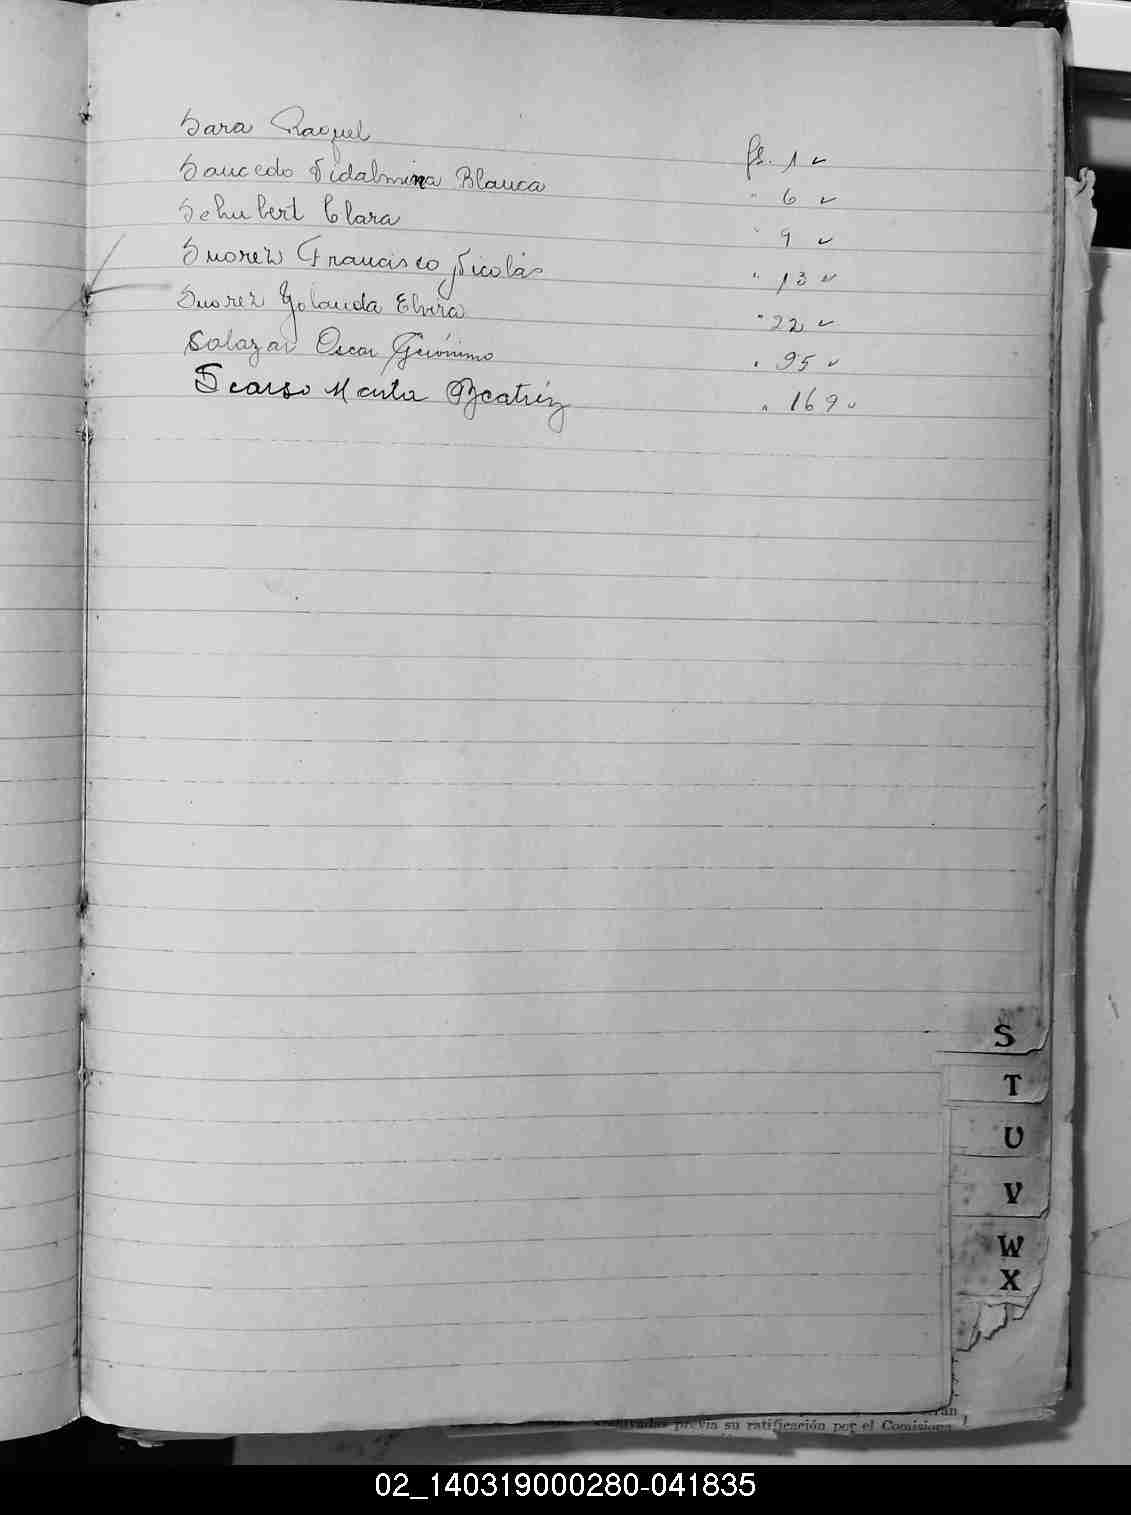 Sara Raquel fs. 1 ✓
Saucedo Vidalmina Blanca " 6 ✓
Schubert Clara " 9 ✓
Suarez Francisco Nicolás " 13 ✓
Suarez Yolanda Elvira " 22 ✓
Salazar Oscar Gerónimo " 95 ✓
Marta Beatríz " 169 ✓
S
T
U
V
W
X
previa su ratificación por el
02_140319000280-041835